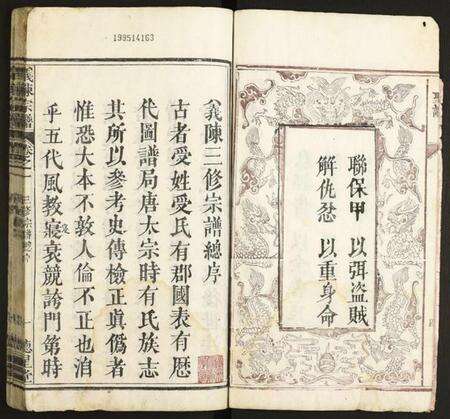 199514163
聯保甲 以弭盜賊
解仇忿 以重身命
義陳三修宗譜總序
古者受姓受氏有郡國表有歷
代圖譜局唐太宗時有氏族志
其所以參考史傳檢正眞僞者
惟恐大本不敦人倫不正也洎
乎五代風教寖衰競誇門第時
義陳宗譜